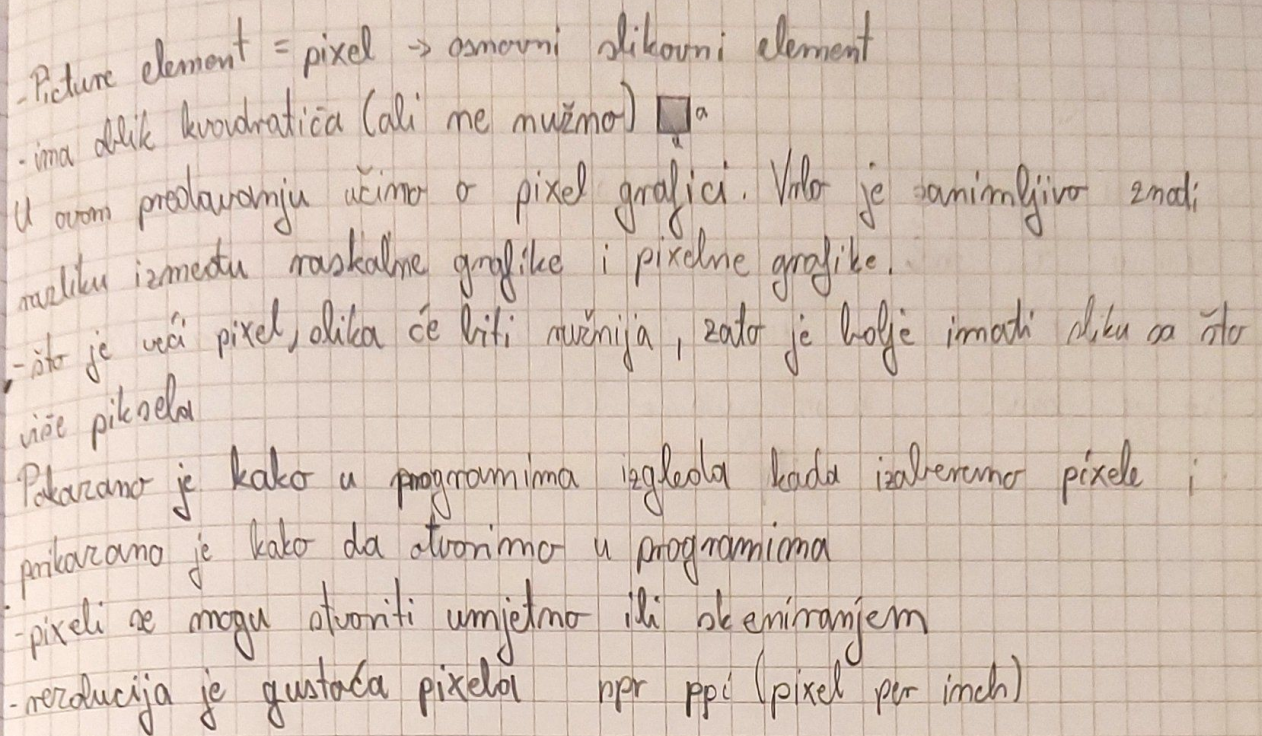 - Picture element = pixel → osnovni slikovni element
- ima oblik kvadratića (ali ne nužno) a
a
U ovom predavanju učimo o pixel grafici. Vrlo je zanimljivo znati
razliku između raskalne grafike i pixelne grafike.
- što je veći pixel, slika će biti mučnija, zato je bolje imati sliku sa što
više piksela
Pokazano je kako u programima izgleda kada izaberemo pixele i
prikazano je kako da stvorimo u programima
- pixeli se mogu stvoriti umjetno ili skeniranjem
- rezolucija je gustoća pixela npr ppi (pixel per inch)